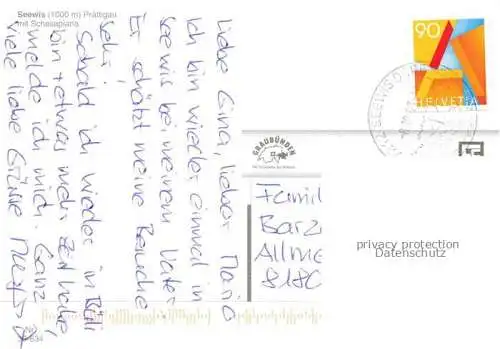 Seewis (1000 m) Prättigau
mit Schesaplana
Liebe Gina, lieber Mario
Ich bin wieder einmal in
Seewis bei meinem Vater.
Er schätzt meine Besuche
sehr,
Sobald ich wieder in
bin + etwas mehr Zeit habe,
melde ich mich. Ganz
viele liebe Grüsse
90
HELVETIA
GRAUBÜNDEN
Famil
Barz
Allme
8180
privacy protection
Datenschutz
Nr.
634